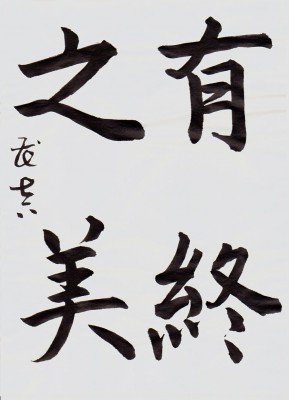 有終
之美